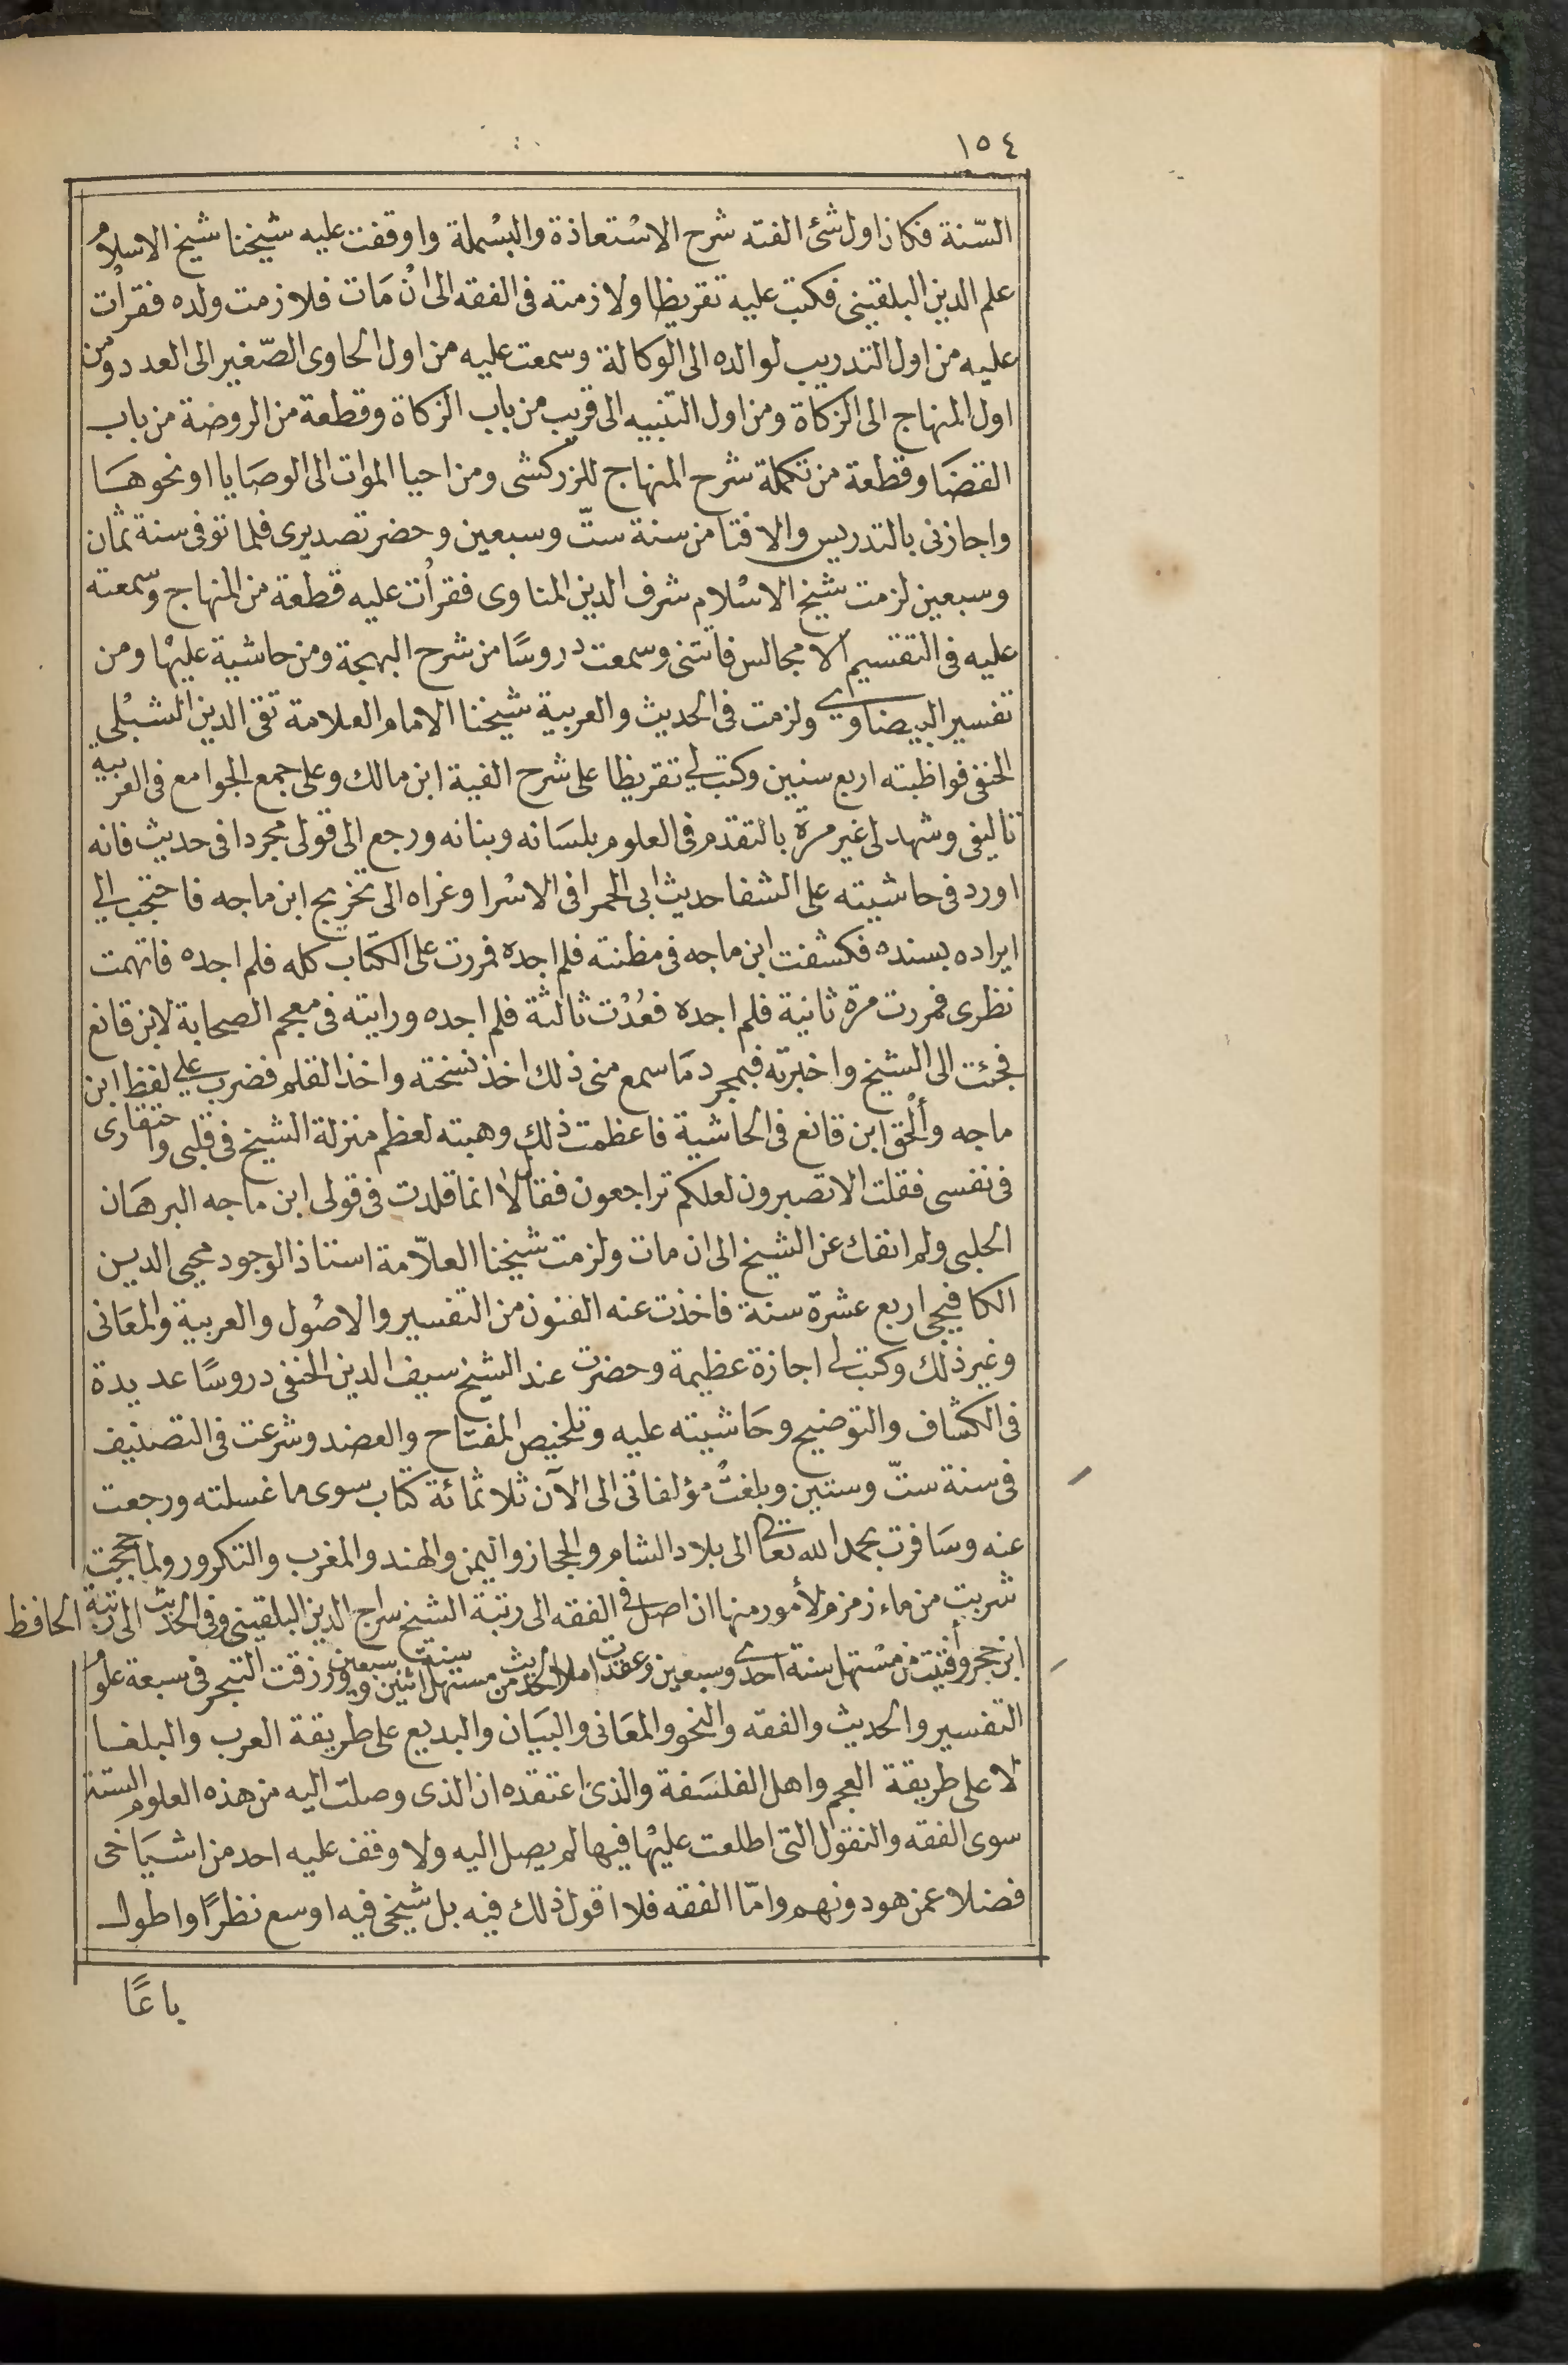 ١٥٤
السّنة فكان اول شئ الفته شرح الاسْتعاذة والبسْملة واوقفت عليه شيخنا شيخ الاسلام
علم الدين البلقينى فكتب عليه تقريظا ولازمته فى الفقه الى انْ مَات فلازمت ولده فقرأت
عليه من اول التدريب لوالده الى الوكالة وسمعت عليه من اول الحاوى الصّغير الى العدد ومن
اول المنهاج الى الزكاة ومن اول التنبيه الى قريب من باب الزكاة وقطعة من الروضة من باب
القضَا وقطعة من تكملة شرح المنهاج للزركشى ومن احيا الموات الى الوصَايا او نحوهَا
واجازنى بالتدريس والافتا من سنة ستّ وسبعين وحضر تصديرى فلما توفى سنة ثمان
وسبعين لزمت شيخ الاسْلام شرف الدين المناوى فقرأت عليه قطعة من المنهاج وسمعته
عليه فى التقسيم الا مجالس فاتتنى وسمعت دروسًا من شرح البهجة ومن حاشية عليهْا ومن
تفسير البيضاوي ولزمت فى الحديث والعربية شيخنا الامام العلامة تقى الدين الشبْلى
الحنفى فواظبته اربع سنين وكتب لى تقريظا على شرح الفية ابن مالك وعلى جمع الجوامع فى العربية
تاليفى وشهد لى غير مرّة بالتقدم فى العلوم بلسَانه وبنانه ورجع الى قولى مجردا فى حديث فانه
اورد فى حاشيته على الشفا حديث ابى الحمرا فى الاسْرا وعزاه الى تخريج ابن ماجه فاحتجب الى
ايراده بسنده فكشفت ابن ماجه فى مظنته فلم اجده فمررت على الكتاب كله فلم اجده فاتهمت
نظرى فمررت مرة ثانية فلم اجده فعُدْت ثالثة فلم اجده ورايته فى معجم الصحابة لابن قانع
فجئت الى الشيخ واخبرته فبمجرد مَا سمع منى ذلك اخذ نسخته واخذ القلم فضرب على لفظ ابن
ماجه وأَلْحق ابن قانع فى الحاشية فاعظمت ذلك وهبته لعظم منزلة الشيخ فى قلبى واحتقارى
فى نفسى فقلت الا تصبرون لعلكم تراجعون فقال لا انما قلدت فى قولى ابن ماجه البرهَان
الحلبى ولم انفك عن الشيخ الى ان مات ولزمت شيخنا العلاّمة استاذ الوجود محيى الدين
الكافيجى اربع عشرة سنة فاخذت عنه الفنون من التفسير والاصُول والعربية والمعَانى
وغير ذلك وكتب لى اجازة عظيمة وحضرت عند الشيخ سيف الدين الحنفى دروسًا عديدة
فى الكشاف والتوضيح وحَاشيته عليه وتلخيص المفتاح والعضد وشرعت فى التصنيف
فى سنة ستّ وستين وبلغتْ مؤلفاتى الى الآن ثلاثمائة كتاب سوى ما غسلته ورجعت
عنه وسَافرت بحمد الله تعالى الى بلاد الشام والحجاز واليمن والهند والمغرب والتكرور ولما حججت
شربت من ماء زمزم لأمور منها ان اصل فى الفقه الى رتبة الشيخ سراج الدين البلقينى وفى الحديث الى رتبة الحافظ
ابن حجر وأفتيت من مسْتهل سنة احدى وسبعين وعقدت املا الحديث من مستهل سنة اثنين وسبعين ورزقت التبحر فى سبعة علوم
التفسير والحديث والفقه والنحو والمعَانى والبيَان والبديع على طريقة العرب والبلغا
لا على طريقة العجم واهل الفلسَفة والذى اعتقده ان الذى وصلت اليه من هذه العلوم الستة
سوى الفقه والنقول التى اطلعت عليهْا فيها لم يصل اليه ولا وقف عليه احد من اشيَاخى
فضلا عمن هو دونهم وامّا الفقه فلا اقول ذلك فيه بل شيخى فيه اوسع نظرًا واطول
باعًا